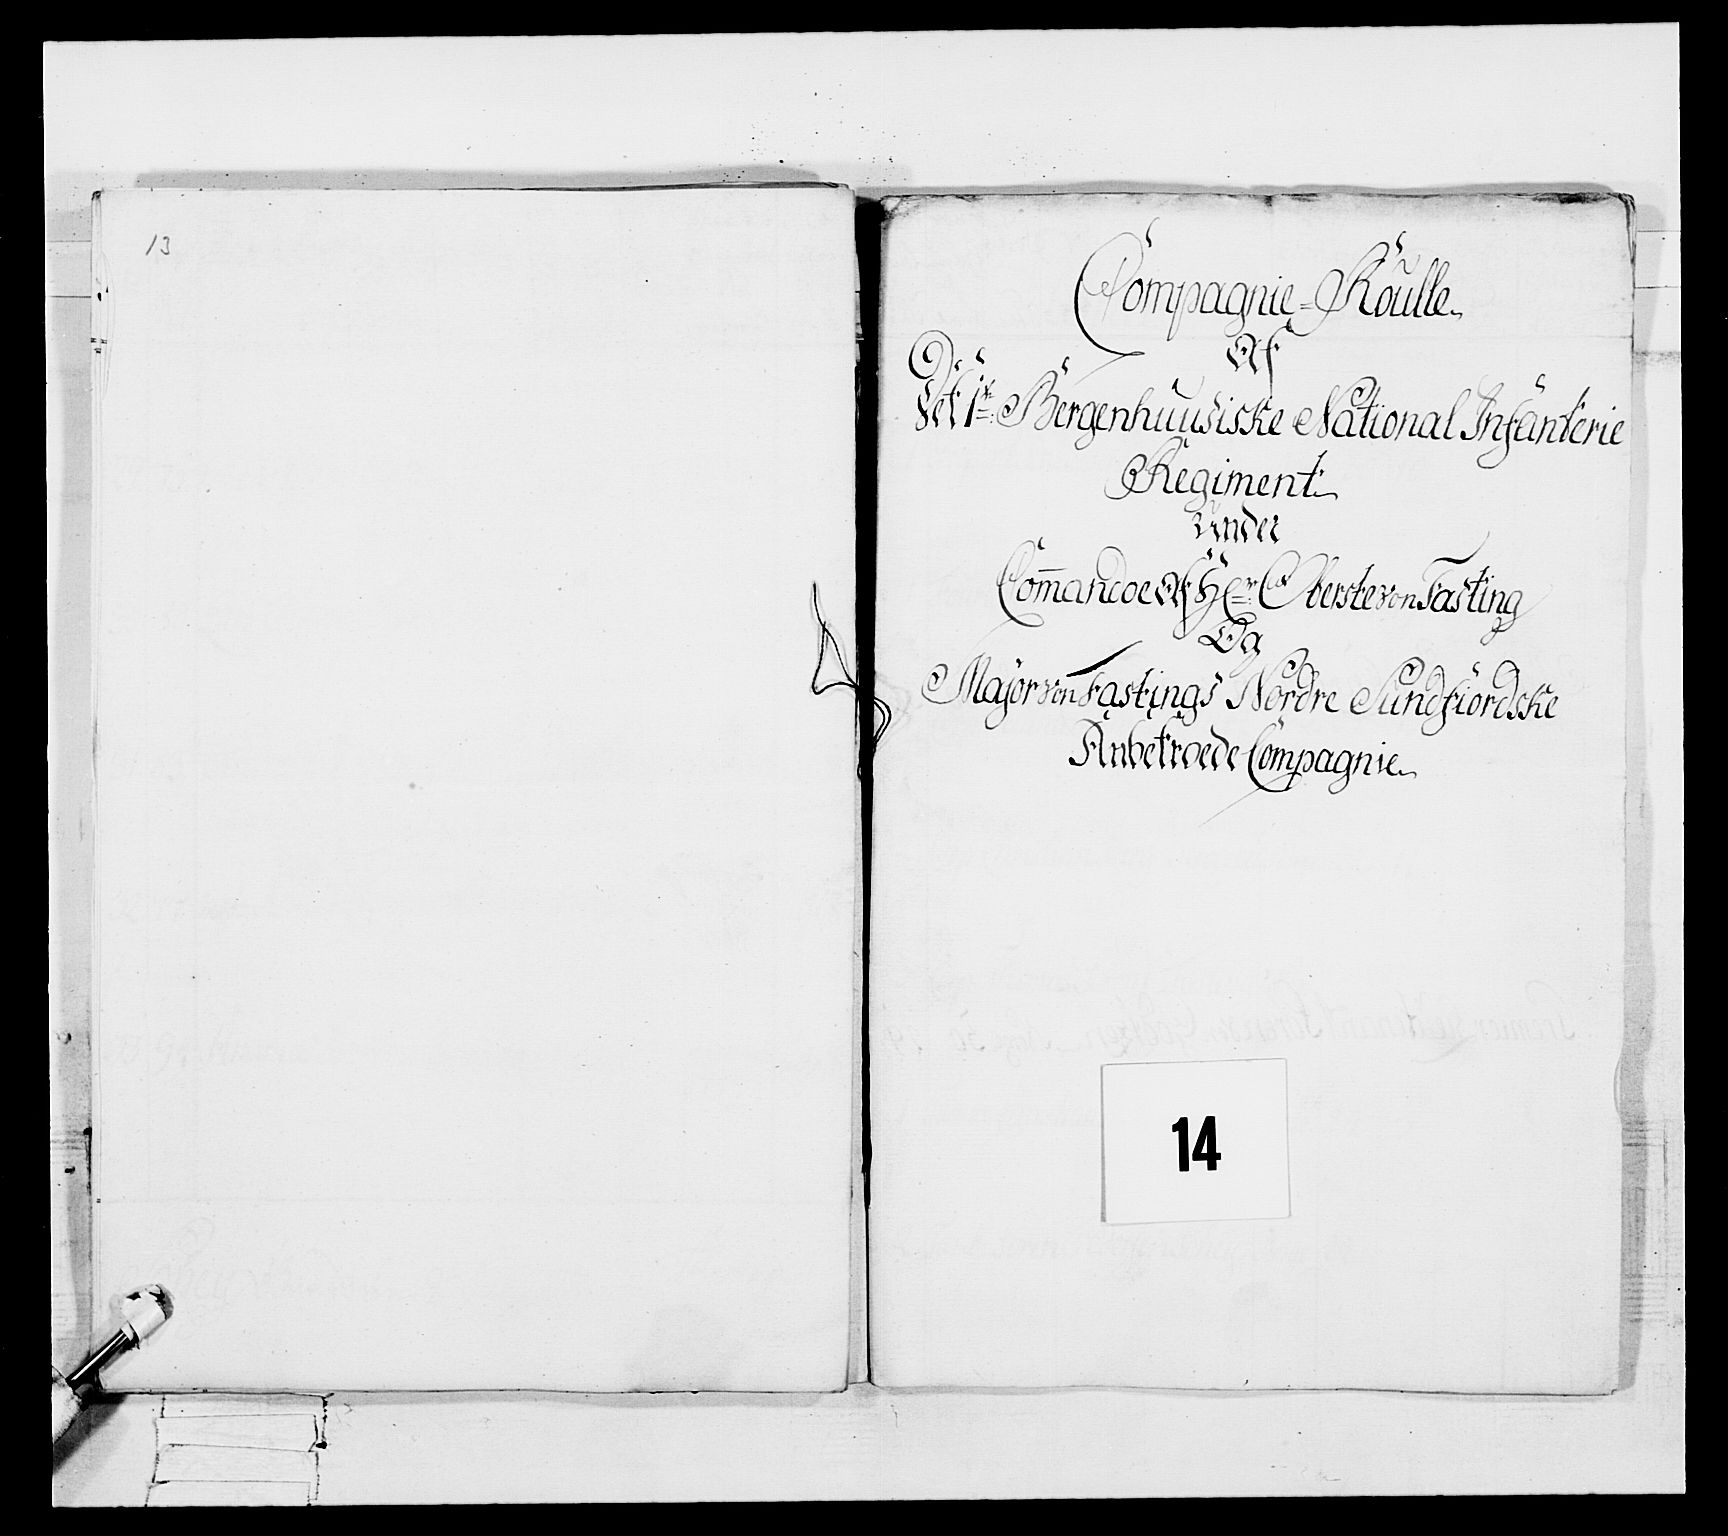 13
Compagnie=Roulle
Af
Det 1ste Bergenhuusiske National Infanterie
Regiment
under
Com̄andoe Af Hr: Oberste von Fasting
Og
Major von Fastings Nordre Sundfiordske
Anbetroede Compagnie
14